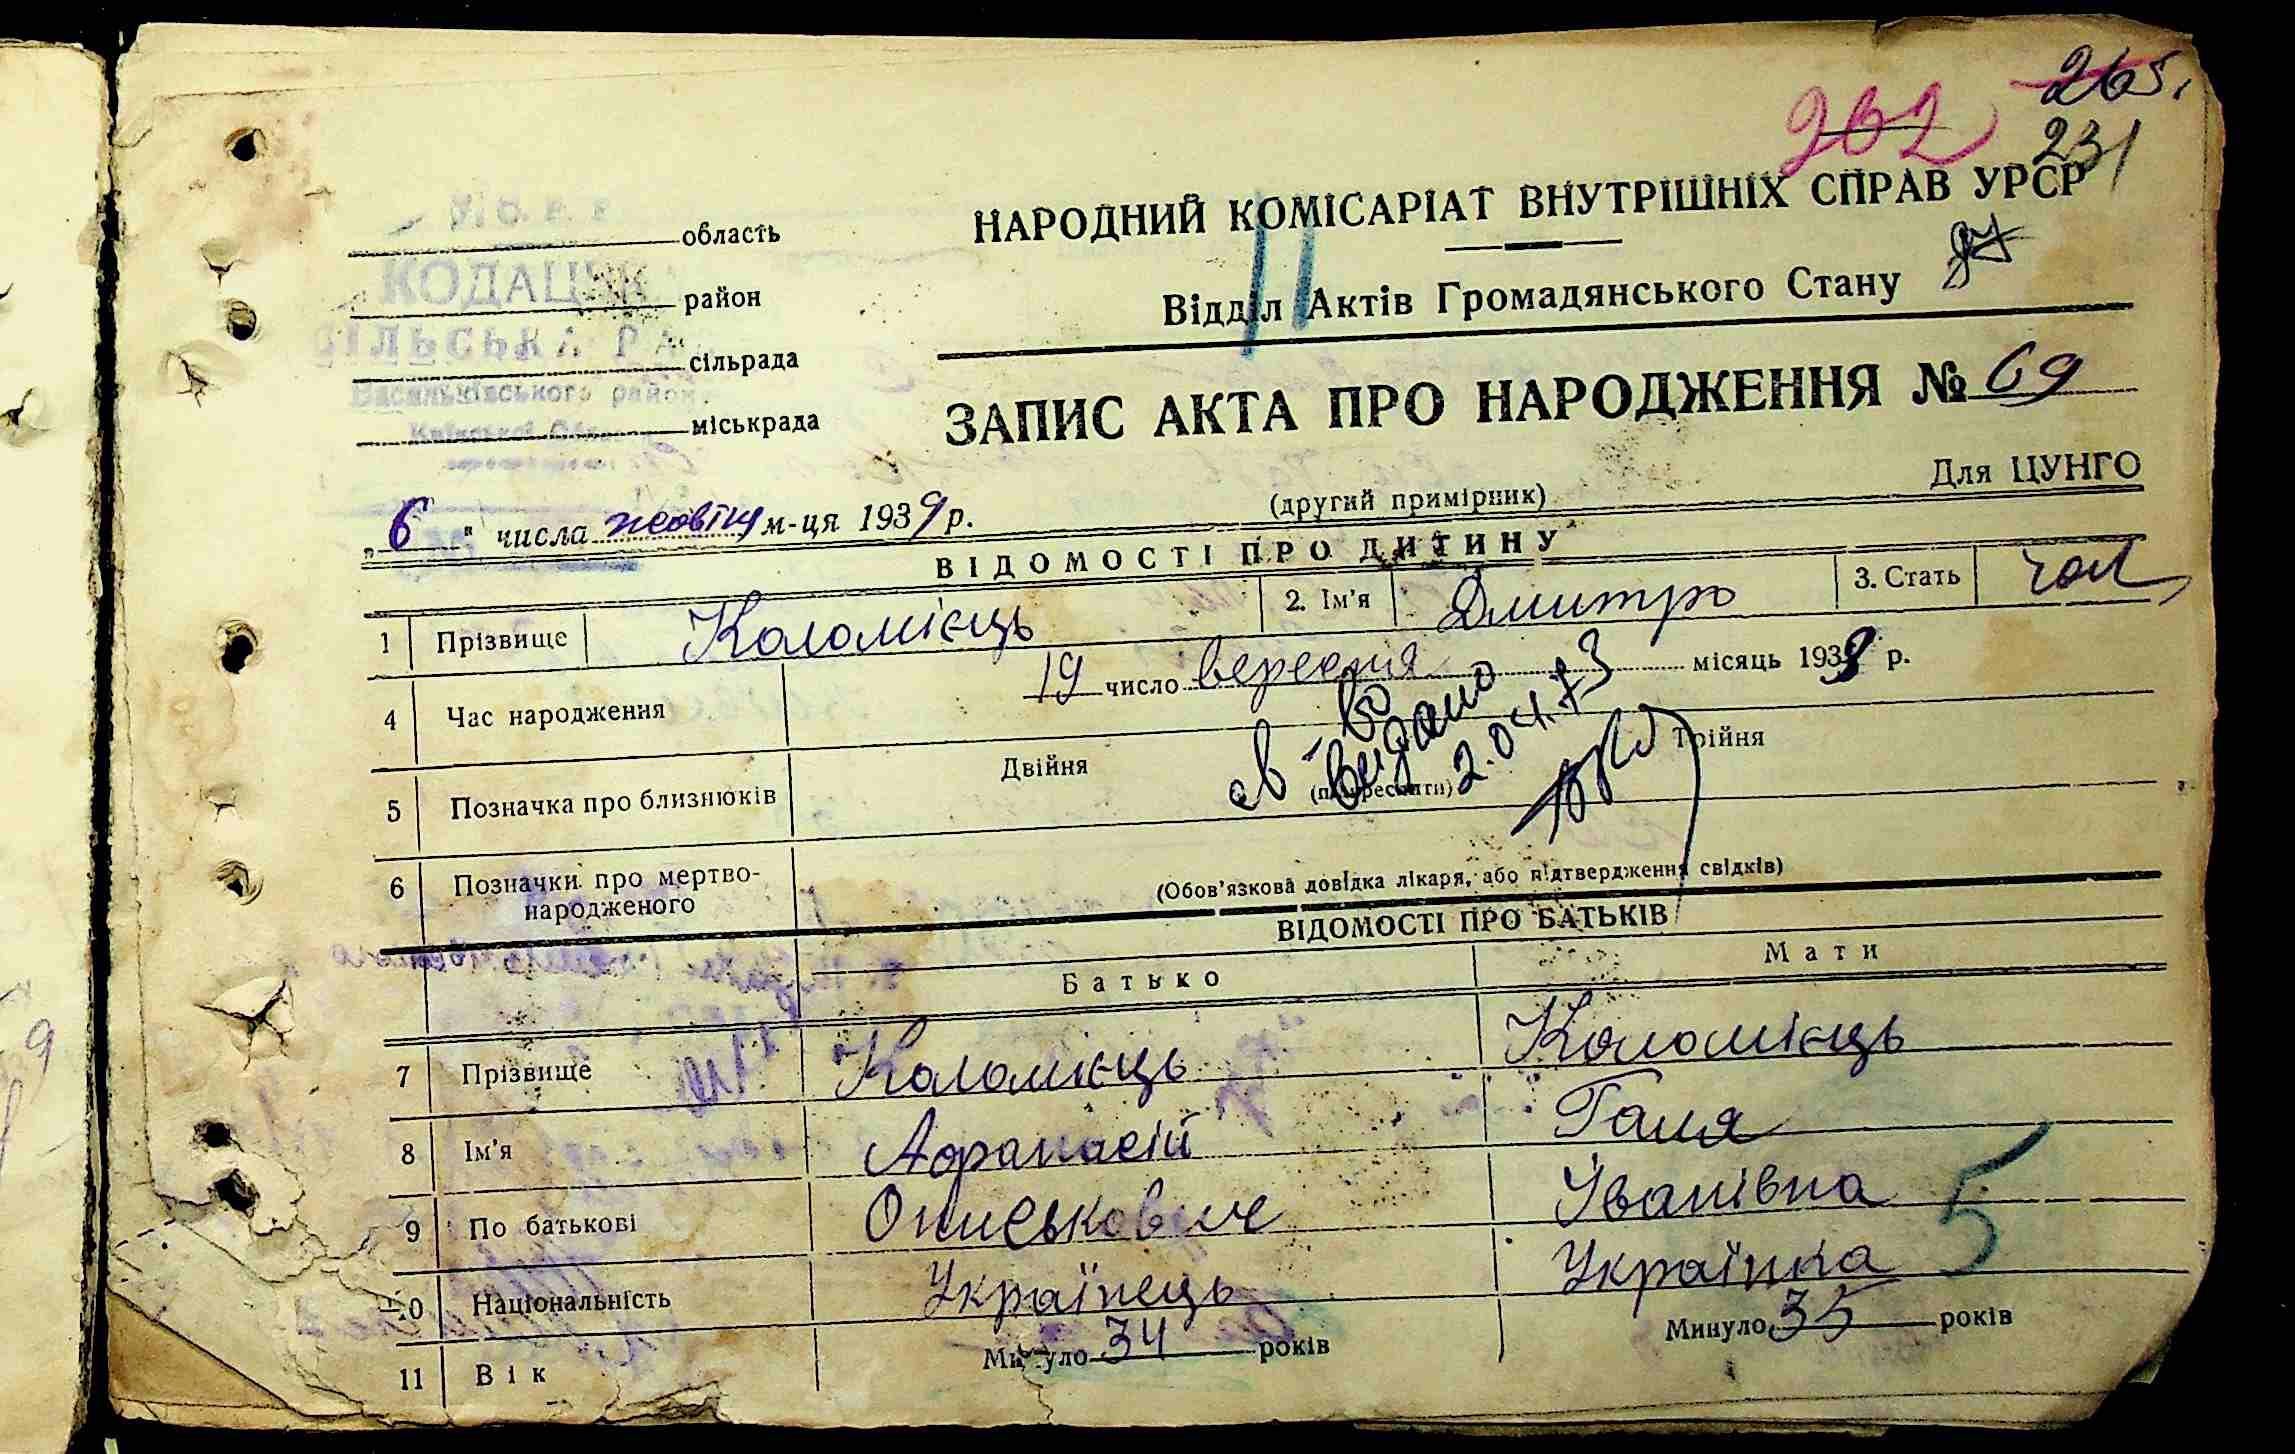 265,
262
231
НАРОДНИЙ КОМІСАРІАТ ВНУТРІШНІХ СПРАВ УРСР
Відділ Актів Громадянського Стану
область
район
сільрада
міськрада
КОДАЦЬК
СІЛЬСЬКА РА
Васильківського район.
ЗАПИС АКТА ПРО НАРОДЖЕННЯ № 69
Для ЦУНГО
(другий примірник)
„ 6 " числа жовтня м-ця 1939 р.
ВІДОМОСТІ ПРО ДИТИНУ
1 Прізвище Коломієць 2. Ім'я Дмитро 3. Стать чол
4 Час народження 19 число вересня місяць 1938 р.
св-во
видано
2.04.73
5 Позначка про близнюків Двійня (підкреслити) Трійня
6 Позначки про мертво-
народженого
(Обов'язкова довідка лікаря, або підтвердження свідків)
ВІДОМОСТІ ПРО БАТЬКІВ
Батько Мати
7 Прізвище Коломієць Коломієць
8 Ім'я Афанасій Галя
9 По батькові Ониськович Іванівна
5
10 Національність Українець Українка
11 Вік Минуло 34 років Минуло 35 років